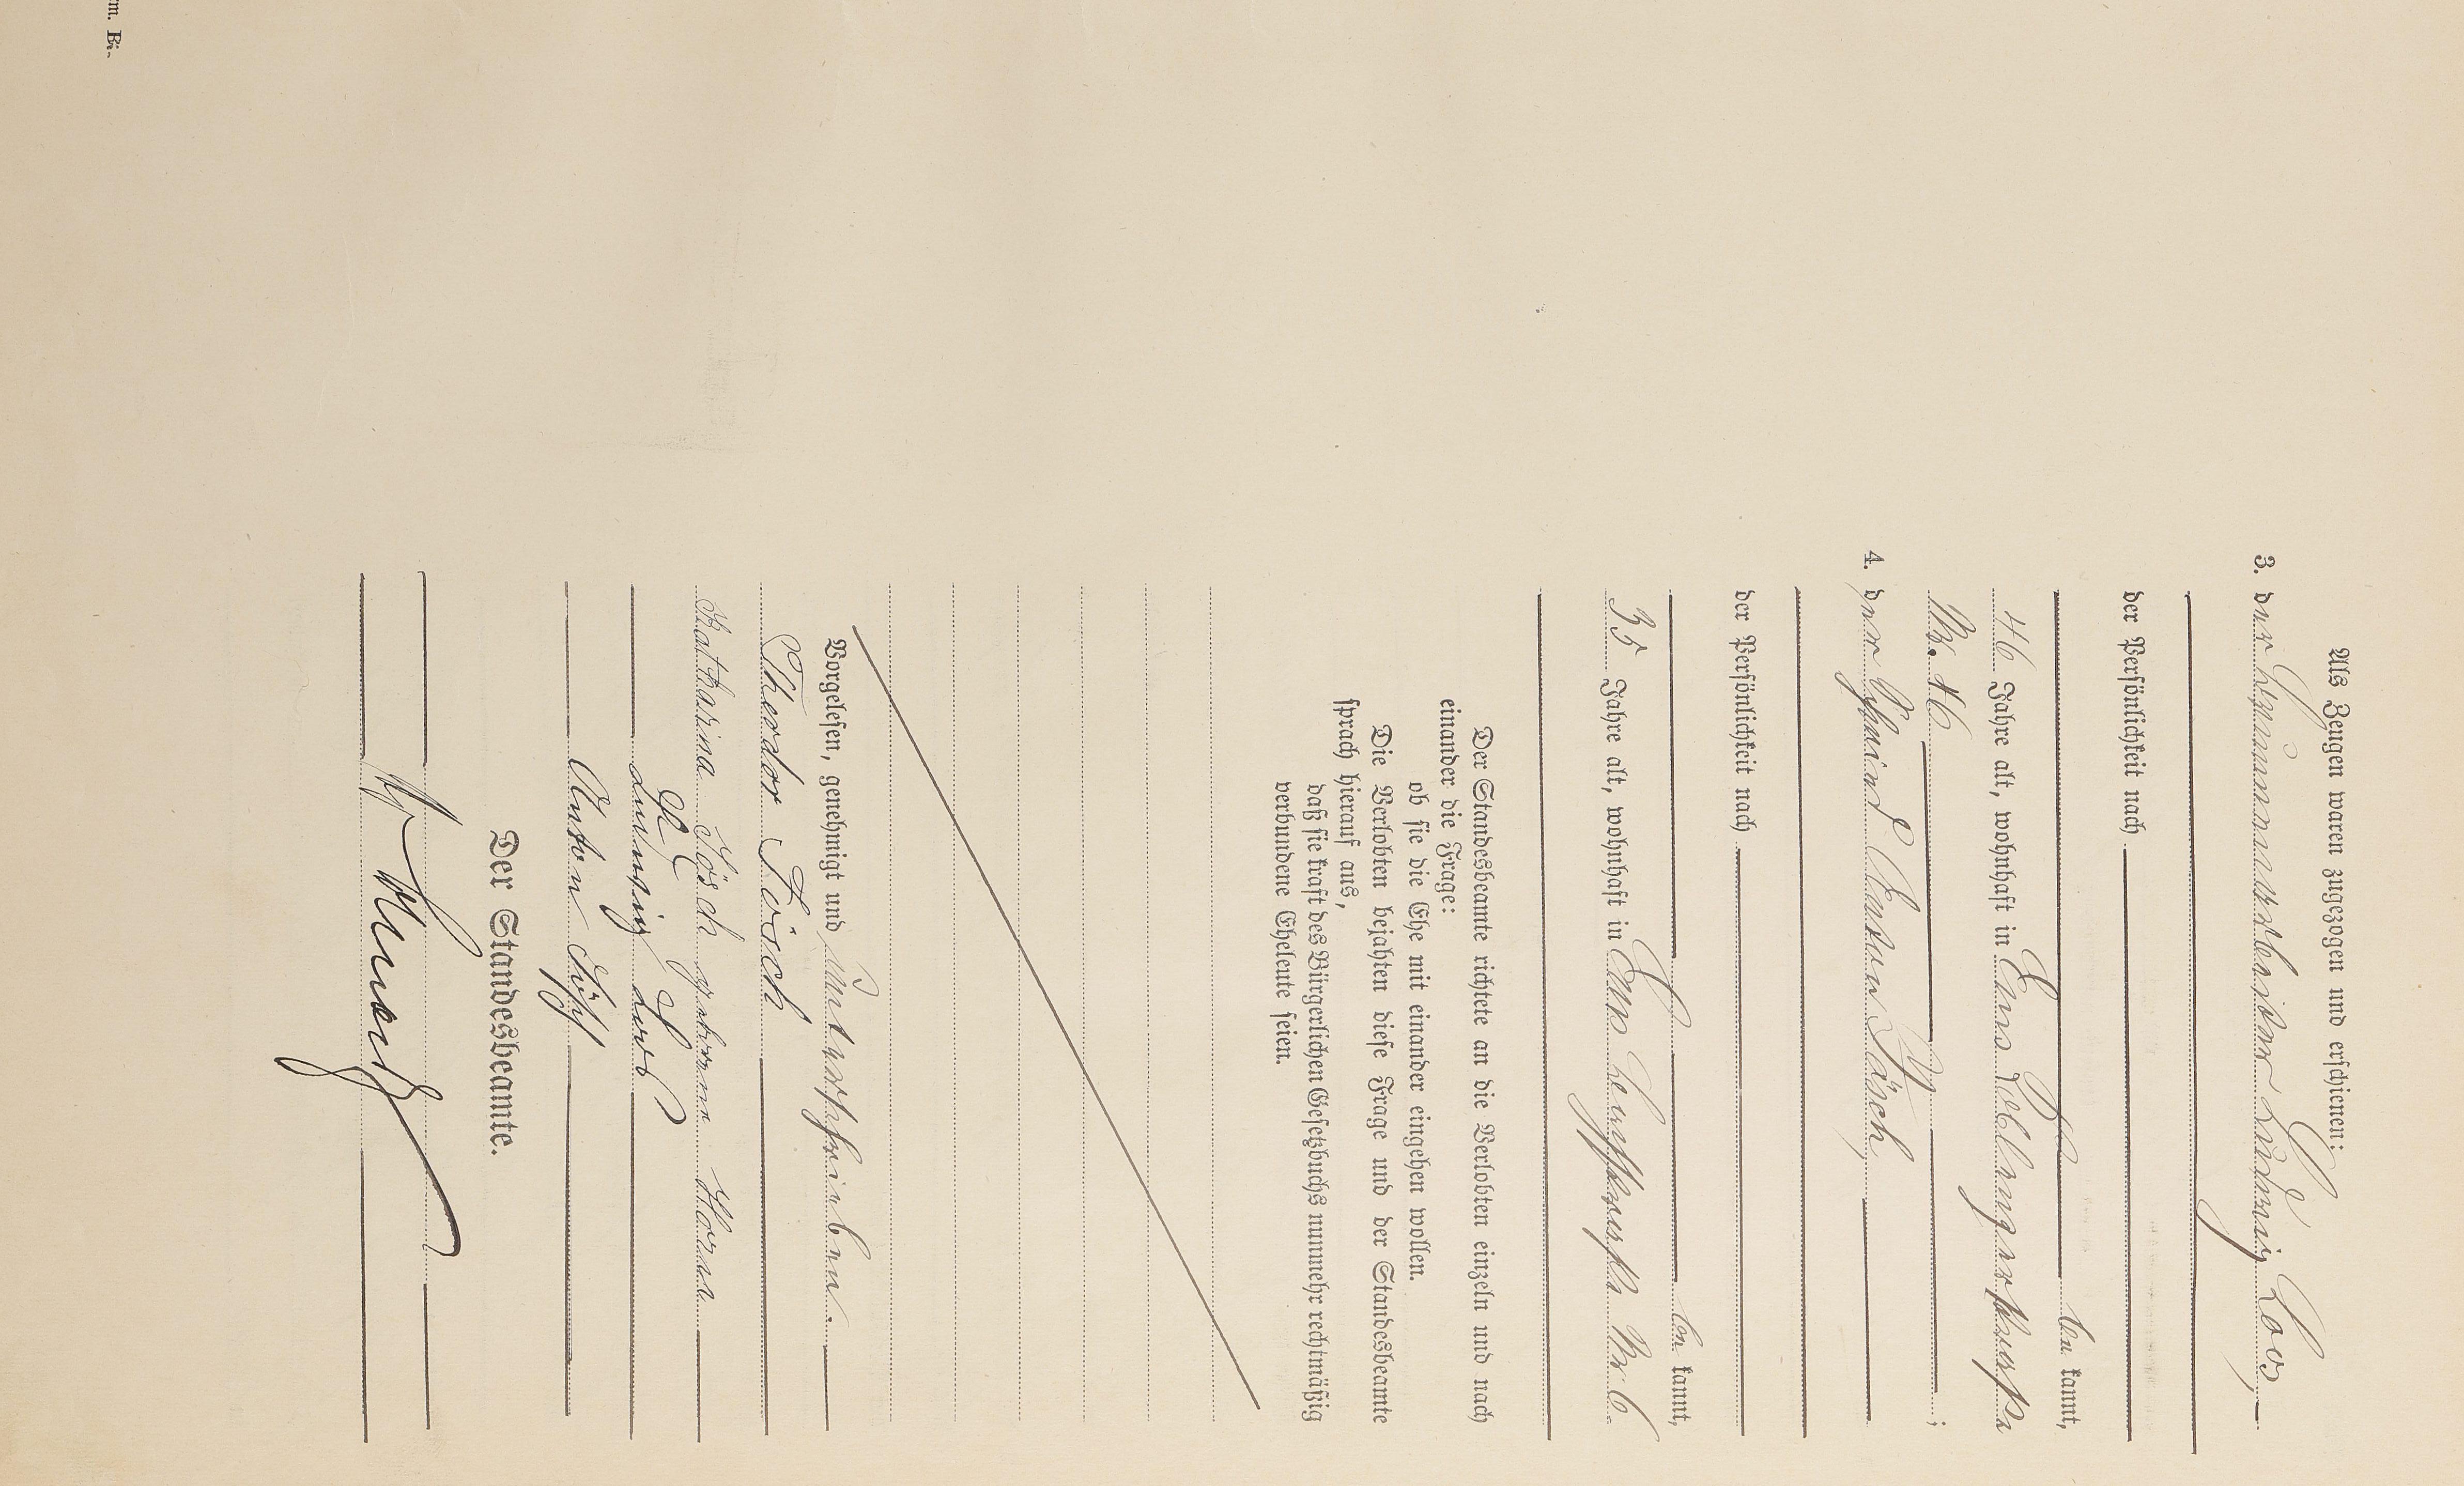 Als Zeugen waren zugezogen und erschienen:
3. der Eisenbahnarbeiter Ludwig Loos,
der Persönlichkeit nach
be kannt,
46 Jahre alt, wohnhaft in Ems
Nr. 46 ;
4. der Anton Lösch,
der Persönlichkeit nach
be kannt,
35 Jahre alt, wohnhaft in Ems Nr 6
Der Standesbeamte richtete an die Verlobten einzeln und nach
einander die Frage:
ob sie die Ehe mit einander eingehen wollen.
Die Verlobten bejahten diese Frage und der Standesbeamte
sprach hierauf aus,
daß sie kraft des Bürgerlichen Gesetzbuchs nunmehr rechtmäßig
verbundene Eheleute seien.
Vorgelesen, genehmigt und unterschrieben.
Theodor Lösch
Katharina Lösch geborene Horn
Ludwig Loos
Anton Lösch
Der Standesbeamte.
rm. Bi.